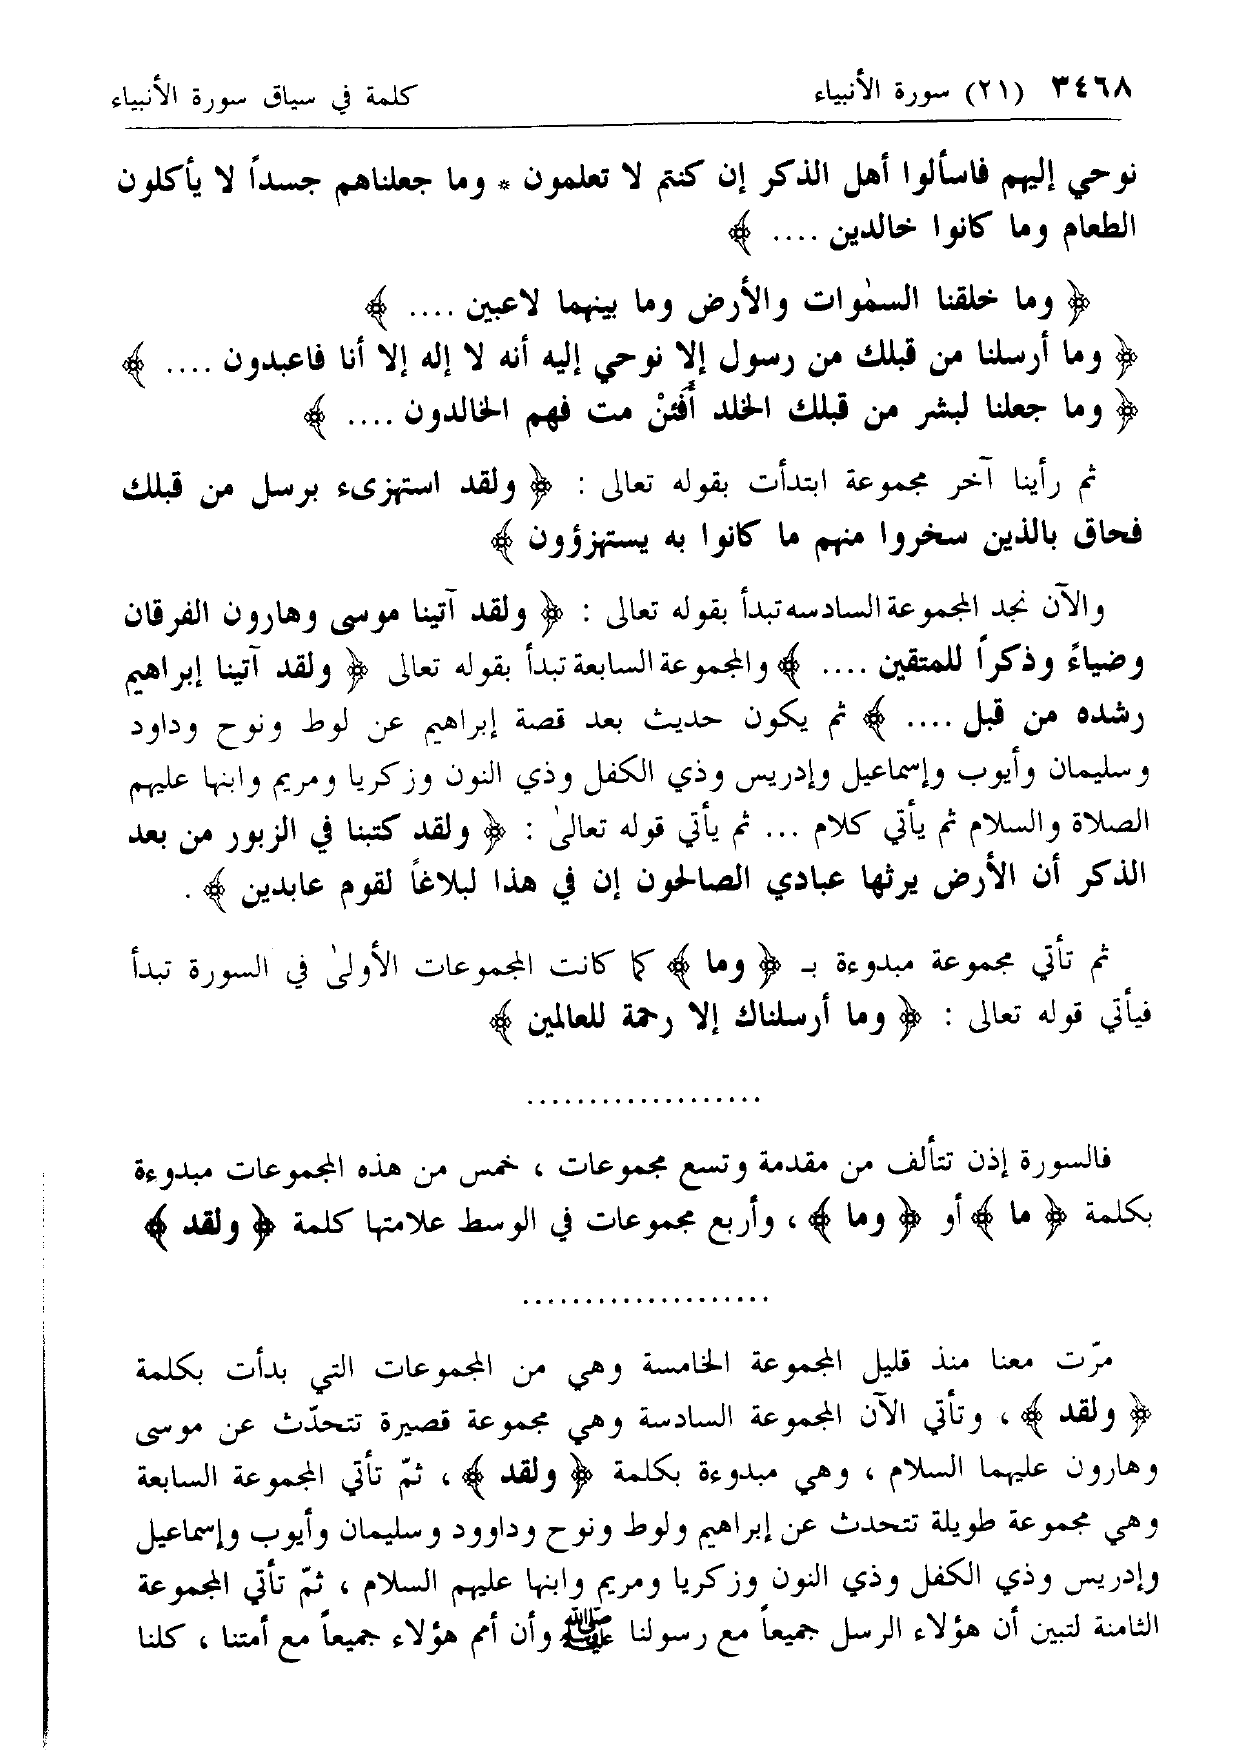 ٣٤٦٨ (٢١) سورة الأنبياء كلمة في سياق سورة الأنبياء
نوحي إليهم فاسألوا أهل الذكر إن كنتم لا تعلمون * وما جعلناهم جسداً لا يأكلون
الطعام وما كانوا خالدين .... ﴾
﴿ وما خلقنا السمٰوات والأرض وما بينهما لاعبين .... ﴾
﴿ وما أرسلنا من قبلك من رسول إلا نوحي إليه أنه لا إله إلا أنا فاعبدون .... ﴾
﴿ وما جعلنا لبشر من قبلك الخلد أَفَئنْ مت فهم الخالدون .... ﴾
ثم رأينا آخر مجموعة ابتدأت بقوله تعالى : ﴿ ولقد استهزىء برسل من قبلك
فحاق بالذين سخروا منهم ما كانوا به يستهزؤون ﴾
والآن نجد المجموعة السادسه تبدأ بقوله تعالى : ﴿ ولقد آتينا موسى وهارون الفرقان
وضياءً وذكراً للمتقين .... ﴾ والمجموعة السابعة تبدأ بقوله تعالى ﴿ ولقد آتينا إبراهيم
رشده من قبل .... ﴾ ثم يكون حديث بعد قصة إبراهيم عن لوط ونوح وداود
وسليمان وأيوب وإسماعيل وإدريس وذي الكفل وذي النون وزكريا ومريم وابنها عليهم
الصلاة والسلام ثم يأتي كلام ... ثم يأتي قوله تعالىٰ : ﴿ ولقد كتبنا في الزبور من بعد
الذكر أن الأرض يرثها عبادي الصالحون إن في هذا لبلاغاً لقوم عابدين ﴾ .
ثم تأتي مجموعة مبدوءة بـ ﴿ وما ﴾ كما كانت المجموعات الأولىٰ في السورة تبدأ
فيأتي قوله تعالى : ﴿ وما أرسلناك إلا رحمة للعالمين ﴾
...................
فالسورة إذن تتألف من مقدمة وتسع مجموعات ، خمس من هذه المجموعات مبدوءة
بكلمة ﴿ ما ﴾ أو ﴿ وما ﴾ ، وأربع مجموعات في الوسط علامتها كلمة ﴿ ولقد ﴾
....................
مرّت معنا منذ قليل المجموعة الخامسة وهي من المجموعات التي بدأت بكلمة
﴿ ولقد ﴾ ، وتأتي الآن المجموعة السادسة وهي مجموعة قصيرة تتحدّث عن موسى
وهارون عليهما السلام ، وهي مبدوءة بكلمة ﴿ ولقد ﴾ ، ثمّ تأتي المجموعة السابعة
وهي مجموعة طويلة تتحدث عن إبراهيم ولوط ونوح وداوود وسليمان وأيوب وإسماعيل
وإدريس وذي الكفل وذي النون وزكريا ومريم وابنها عليهم السلام ، ثمّ تأتي المجموعة
الثامنة لتبين أن هؤلاء الرسل جميعاً مع رسولنا ﷺ وأن أمم هؤلاء جميعاً مع أمتنا ، كلنا